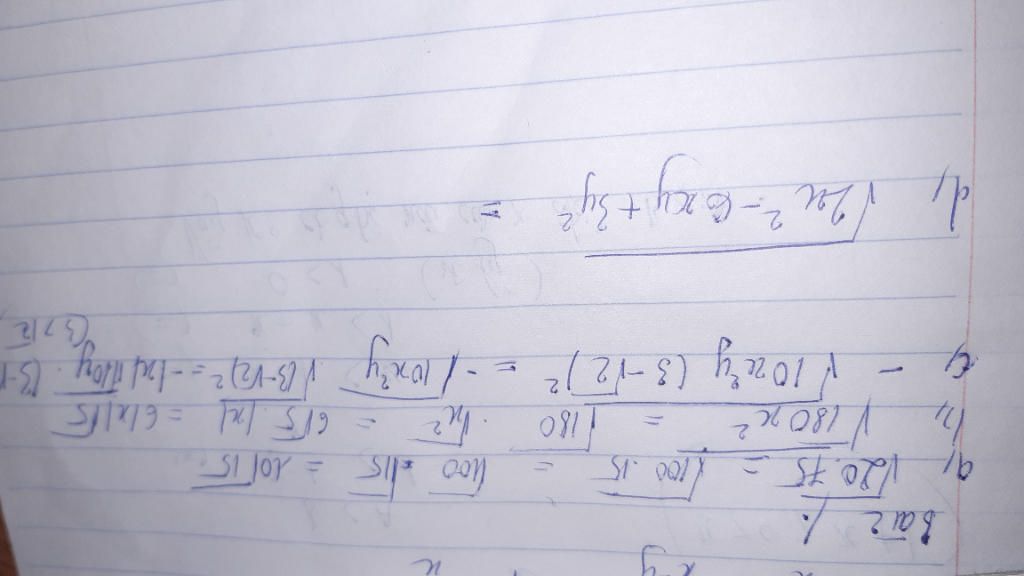 x-y x
Bài 2 /.
a, √20.75 = √100.15 = √100 . √15 = 10√15.
b, √180x² = √180 . √x² = 6√5 . |x| = 6|x|√5
c, - √10x²y (3-√2)² = - √10x²y . √(3-√2)² = - |x|√10y . (3-√
(3>√2
d, √2x² - 6xy + 3y² =